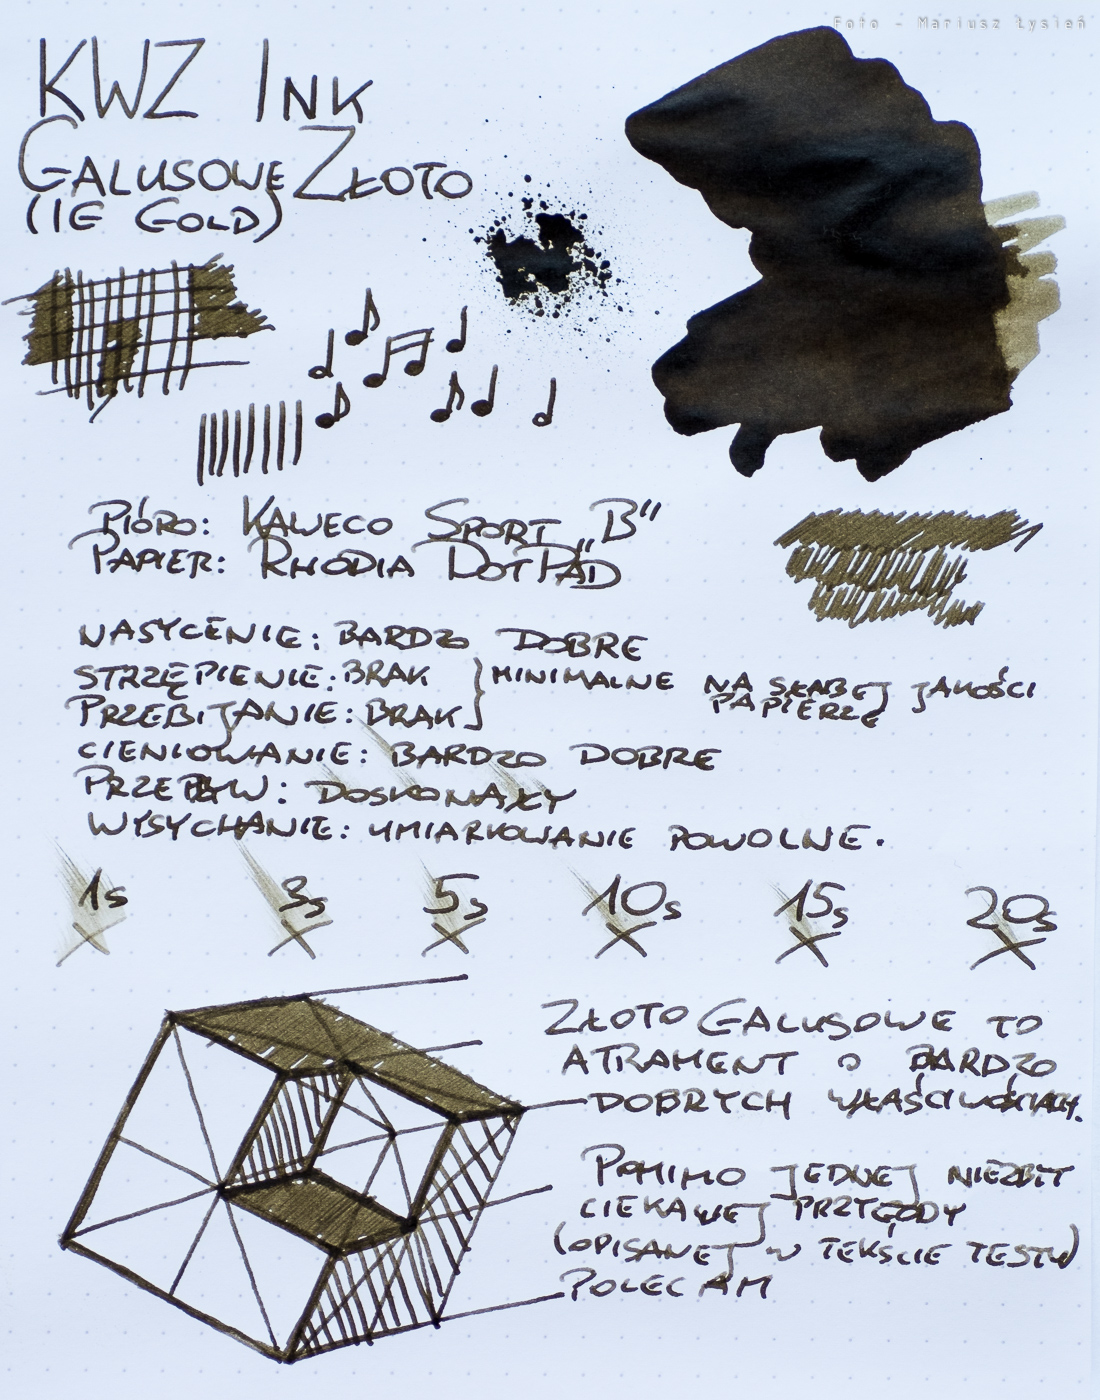 Foto - Mariusz Łysień
KWZ INK
GALUSOWE ZŁOTO
(IG GOLD)
PIÓRO: KAWECO SPORT „B”
PAPIER: RHODIA DOTPAD
NASYCENIE: BARDZO DOBRE
STRZĘPIENIE: BRAK } MINIMALNE NA SŁABEJ JAKOŚCI
PRZEBIJANIE: BRAK PAPIERZE
CIENIOWANIE: BARDZO DOBRE
PRZEPŁYW: DOSKONAŁY
WYSYCHANIE: UMIARKOWANIE POWOLNE.
1s 3s 5s 10s 15s 20s
ZŁOTO GALUSOWE TO
ATRAMENT O BARDZO
DOBRYCH WŁAŚCIWOŚCIACH.
POMIMO JEDNEJ NIEZBYT
CIEKAWEJ PRZYGODY
(OPISANEJ W TEKŚCIE TESTU)
POLECAM